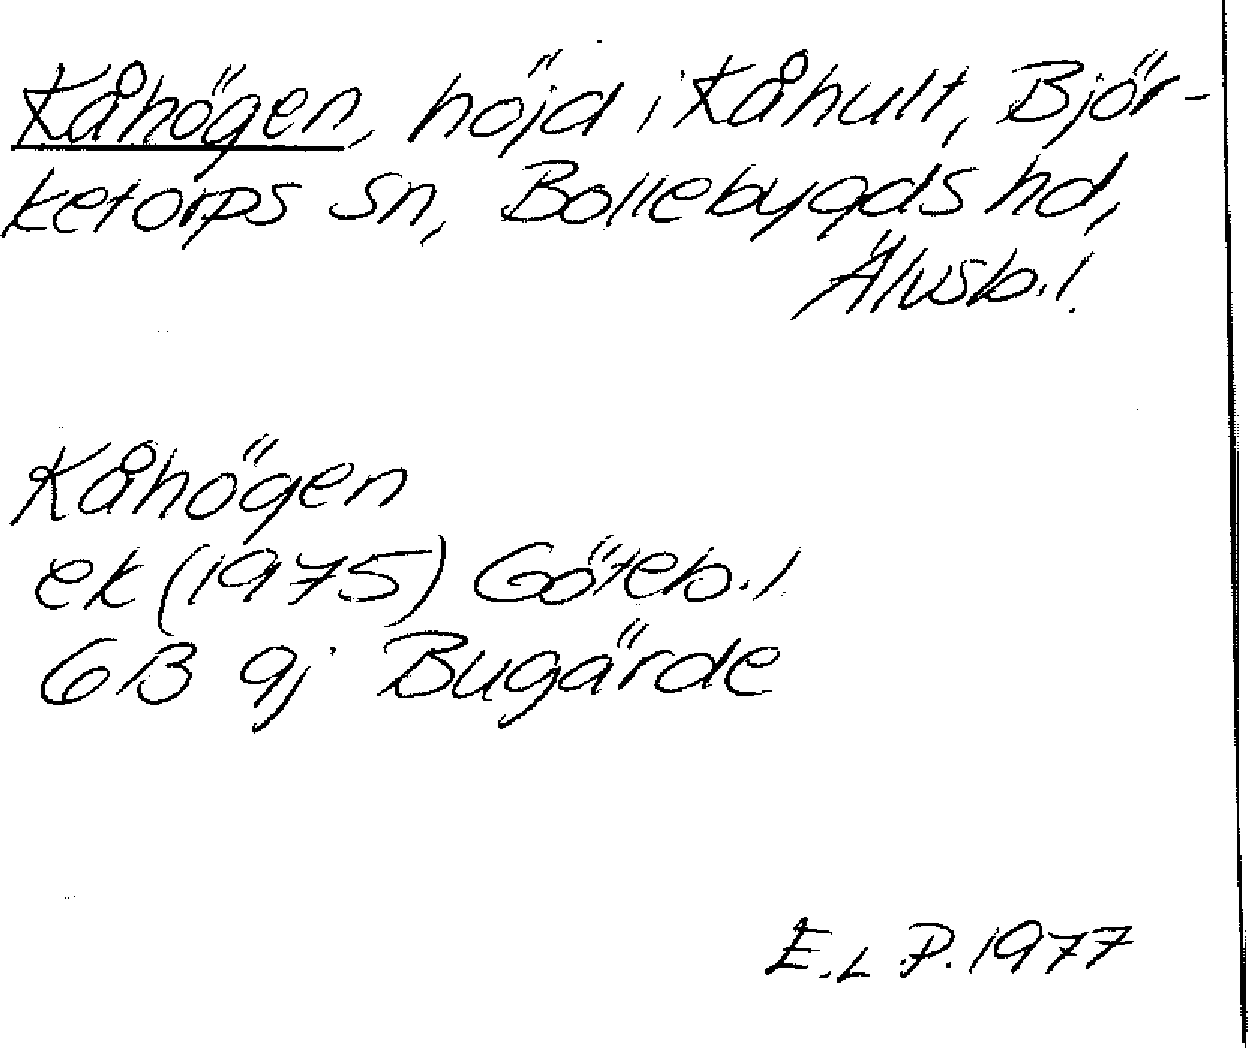 Kåhögen, höjd i Kåhult, Björ-
ketorps sn, Bollebygds hd,
Älvsb. l.
Kåhögen
ek (1975) Göteb. l.
6B 9j Bugärde
E. L. P. 1977